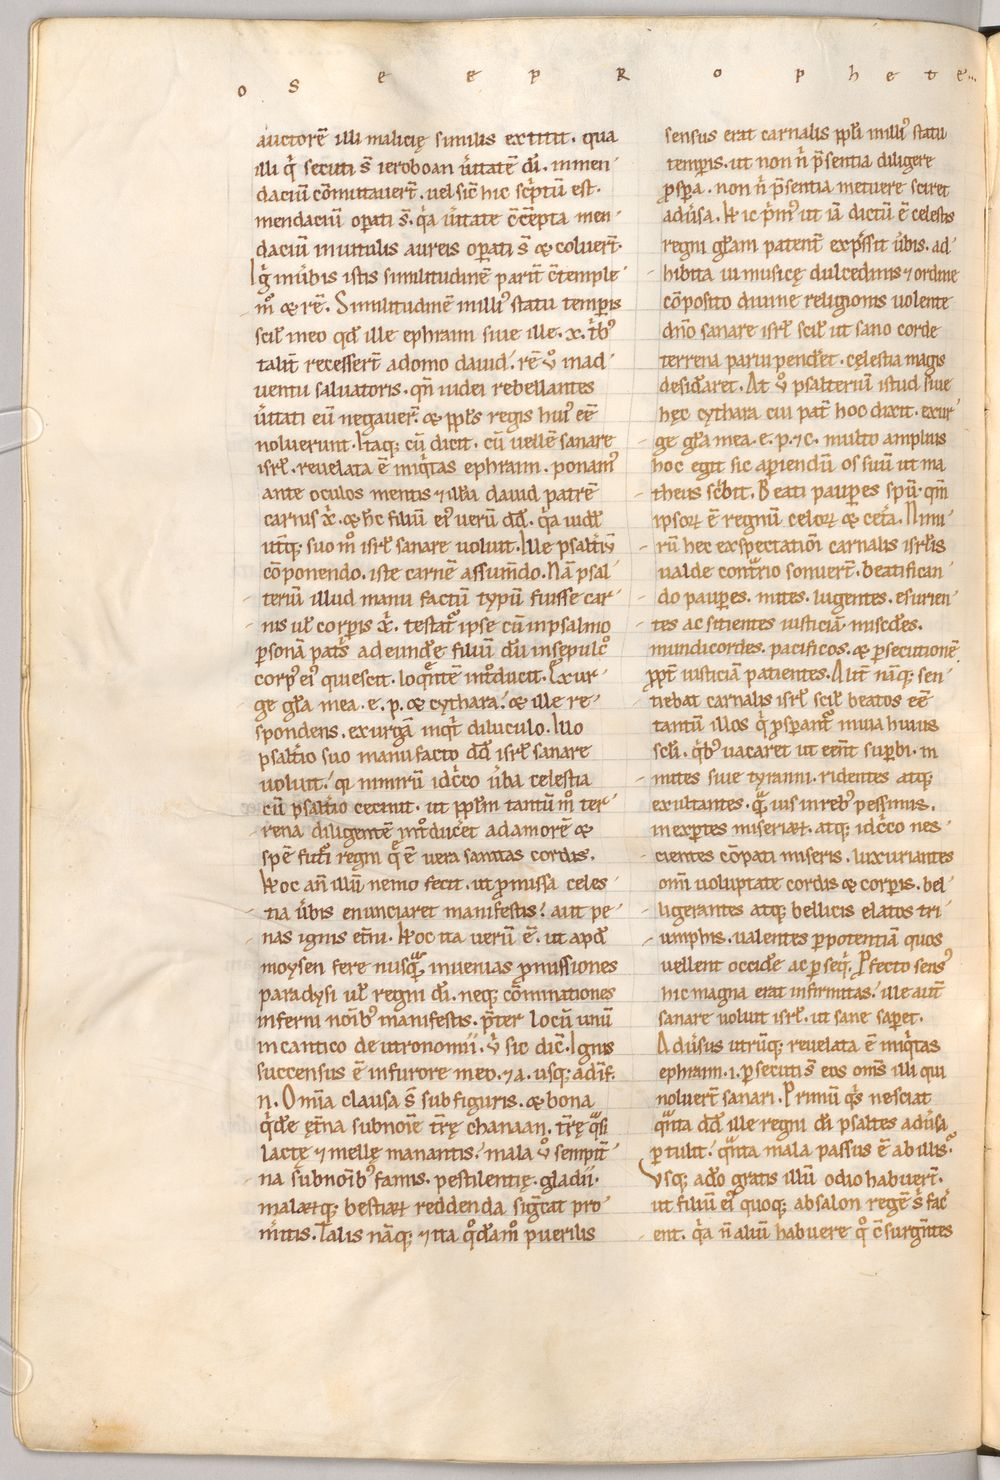 o s e e p R o p h e t e...
auctorē illi malicię similis extitit. qua
illi q̇ secuti s̄ ieroboan ůitatē dī. inmen
daciū cōmutauerт̄. uel sic̄ hic sc̊ptū est.
mendaciū oꝑati s̄. q̇a ůitate c̄cępta men
daciū inuitulis aureis oꝑati s̄ & coluerт̄.
Iǵ inůbis istis similitudinē pariт̄ c̄temple
mͦ & rē. Similitudinē milli᷒ statu temꝑis
scil̄ meo qđ ille ephraim siue ille .x. tͥb᷒
taliт̄ recesserт̄ adomo dauid. rē ů inad
uentu saluatoris. qn̄ iudei rebellantes
ůitati eū negauer̄. & pp̄l̄s regis hui᷒ eē
noluerunt. Itaq; cū dicit. cū uellē sanare
isrł. reuelata ē iniq̇tas ephraim. ponam᷒
ante oculos mentis & illū dauid patrē
carnis x̄. & hc̄ filiū ei᷒ uerū dd̄. q̇a uidł
uт̄q; suo mͦ isrł sanare uoluit. Ille psalт̄iū
cōponendo. iste carnē assum̄do. Nā psal
teriū illud manu factū typū fuisse car
nis ul̄ corꝑis x̄. testat᷑ ipse cū inpsalmo
ꝑsonā patͥs adeund̄e filiū dū insepulcͦ
corp᷒ ei᷒ quiescit. loqͣntē intͦducit. Exur
ge gl̄a mea. e. p. & cythara. & ille re
spondens. exurgā inqͥt diluculo. Illo
psalт̄io suo manu facto dd̄ isrł sanare
uoluit. qi nimirū idc̊co ůba celestia
cū psalт̄io cecinit. ut pp̄l̄m tantū mͦ ter
rena diligentē intͦduc̄et adamorē &
spē futͥ regni qͣ ē uera sanitas cordis.
Hoc an̄ illū nemo fecit. ut ꝓmissa celes
tia ůbis enunciaret manifestis. aut pe
nas ignis eт̄ni. Hoc ita uerū ē. ut apđ
moysen fere nusqͣ inuenias ꝓmissiones
paradysi ul̄ regni dī. neq; cōminationes
inferni noīb᷒ manifestis. p̄ter locū unū
incantico deutronomii. ů sic dic̄. Ignis
succensus ē infurore meo. & a. usq; ad īf.
n. Om̄ia clausa s̄ subfiguris. & bona
qͥde ęт̄na subnoīe т̄rę chanaan. т̄rę qͣsi
lactę & mellę manantis. mala ů sempiт̄
na subnoīb᷒ famis. pestilentię. gladii.
malaꝝq; bestiaꝝ reddenda sigc̄at pro
mittis. Talis nāq; & ita qͦđāmͦ puerilis
sensus erat carnalis pp̄l̄i milli᷒ statu
temꝑis. ut non n̄ p̄sentia diligere
ꝓsꝑa. non n̄ p̄sentia metuere sciret
adůsa. Hic pͥm᷒ ut iā dictū ē celestis
regni gl̄am patent̄ exp̄ssit ůbis. ad
hibita ui musicę dulcedinis & ordine
cōposito diuine religionis uolente
dn̄o sanare isrł scil̄ ut sano corde
terrena paruipend̄et. cęlestia magis
desid̄aret. At ů psalteriū istud siue
hęc cythara cui pat̄ hoc dixit. exur
ge gl̄a mea. e. p. & c. multo amplius
hoc egit sic apiendū os suū ut ma
theus scͥbit. Beati pauꝑes spū. qm̄
ipsoꝝ ē regnū celoꝝ & cet̄a. Nimi
rū hec exspectationi carnalis isrl̄is
ualde contͣrio sonuerт̄. beatifican
do pauꝑes. mites. lugentes. esurien
tes ac sitientes iusticiā. misc̄des.
mundicordes. pacificos. & ꝑsecutionē
ꝓpт̄ iusticiā patientes. Aliт̄ nāq; sen
tiebat carnalis isrł scil̄ beatos eē
tantū illos q̇ ꝓsꝑant᷑ inuia huius
scl̄i. qͥb᷒ uacaret ut een̄t suꝑbi. in
mites siue tyranni. ridentes atq;
exultantes. qͣuis inreb᷒ pessimis.
inexꝑtes miseriaꝝ. atq; idc̊co nes
cientes cōpati miseris. luxuriantes
omī uoluptate cordis & corꝑis. bel
ligerantes atq; bellicis elatos tri
umphis. ualentes ꝑpotentiā quos
uellent occid̄e ac ꝑseqͥ. Ꝓfecto sens᷒
hic magna erat infirmitas. ille auт̄
sanare uoluit isrł. ut sane saꝑet.
Adůsus utrūq; reuelata ē iniq̇tas
ephraim. i. ꝑsecuti s̄ eos oms̄ illi qui
noluerт̄ sanari. Primū qͥs nesciat
qͣnta dd̄ ille regni dī psaltes adůsa
ꝑtulit. qͣnta mala passus ē ab illis.
Usq; ad̄o gratis illū odio habuerт̄.
ut filiū ei᷒ quoq; absalon regē s̊ fac̊
ent. q̇a n̄ aliū habuere qͦ c̄surgn̄tes